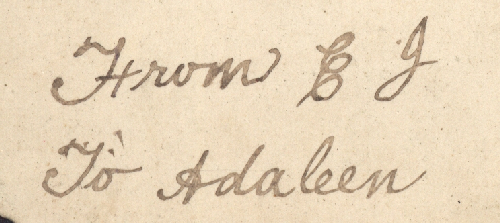 From E J
To Adaleen